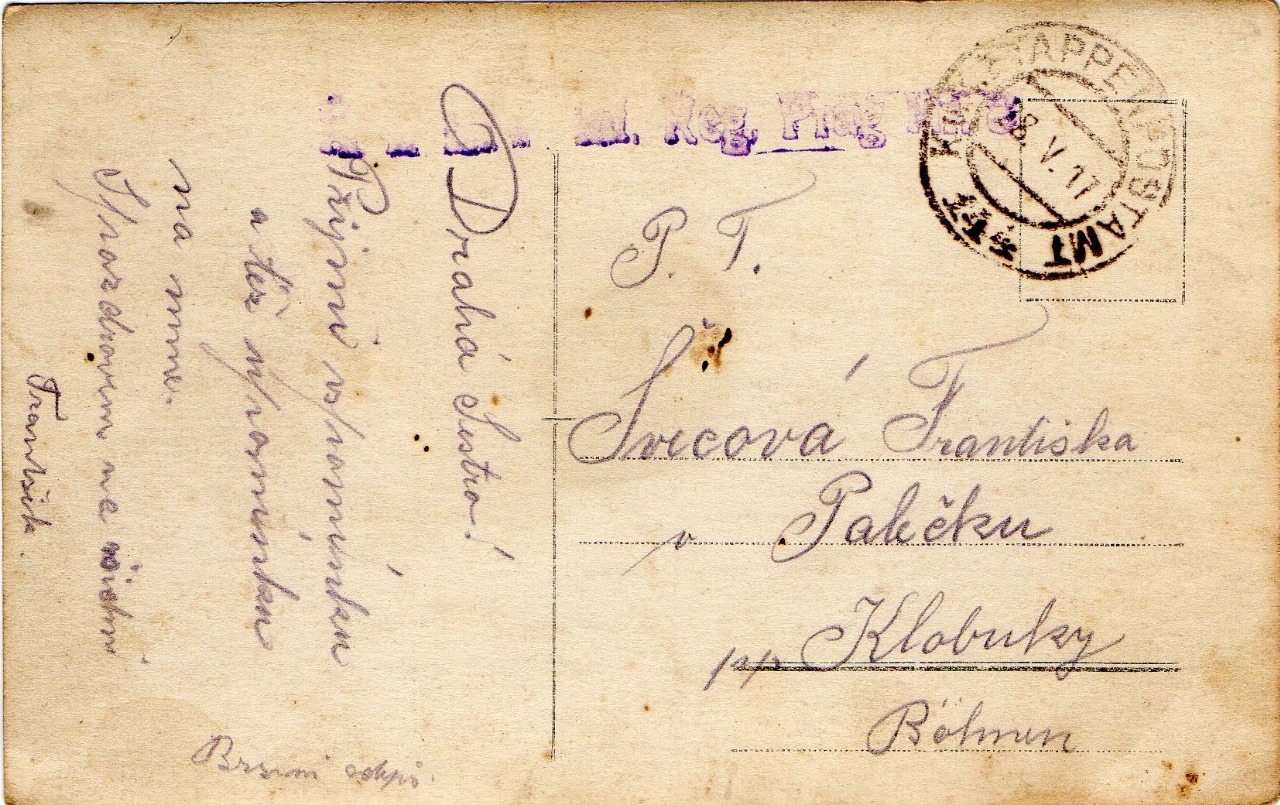 Drahá Sestro!
Přijmi vspomínku
a též vspomínku
na mne.
S pozdravem na
František.
Brzeni odpi.
Inf. Reg. Prag
K.u.K. ETAPPENPOSTAMT
28. V. 17
P. T.
Švecová Františka
v Palečku
pp Klobuky
Böhmen